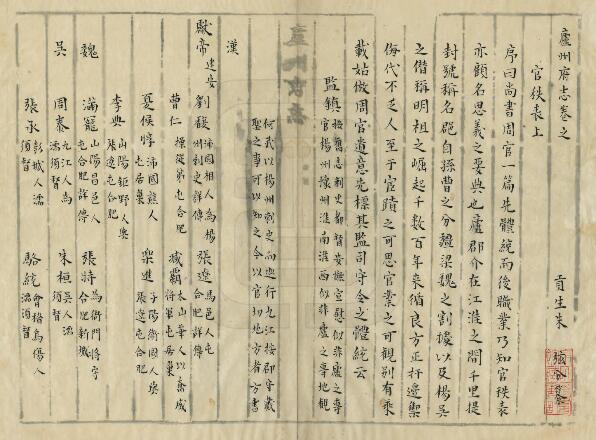 廬州府志卷之
官秩表上
貢生朱
序曰尚書周官一篇先體統而後職業乃知官秩表
亦顧名思義之要典也廬郡介在江淮之間千里提
封號稱名郡自孫曹之分疆梁魏之割據以及楊吳
之僭稱明祖之崛起千數百年來循良方正扞邊禦
侮代不乏人至于官蹟之可思官業之可觀別有乘
載姑倣周官遺意先標其監司守令之體統云
監鎮
按舊志刺史都督安撫宣慰似非廬之專
官楊州豫州淮南淮西似非廬之專地觀
何武以楊州刺史向廵行九江按郡守戴
聖之事可以知之今以官切地方者方書
漢
獻帝建安
劉馥沛國相人為楊
州刺史詳傳
張遼馬邑人屯
合肥詳傳
曹仁操從弟屯合肥
臧霸太山華人以奮威
將軍屯居巢
夏侯惇沛國譙人
屯居巢
樂進陽平衛國人與
張遼屯合肥
李典山陽鉅野人與
張遼屯合肥
魏
滿寵山陽昌邑人
屯合肥詳傳
張特為衙門將守
合肥新城
吳
周泰九江人為
濡須督
朱桓吳人濡
須督
張承彭城人濡
須督
駱統會稽烏傷人
濡須督